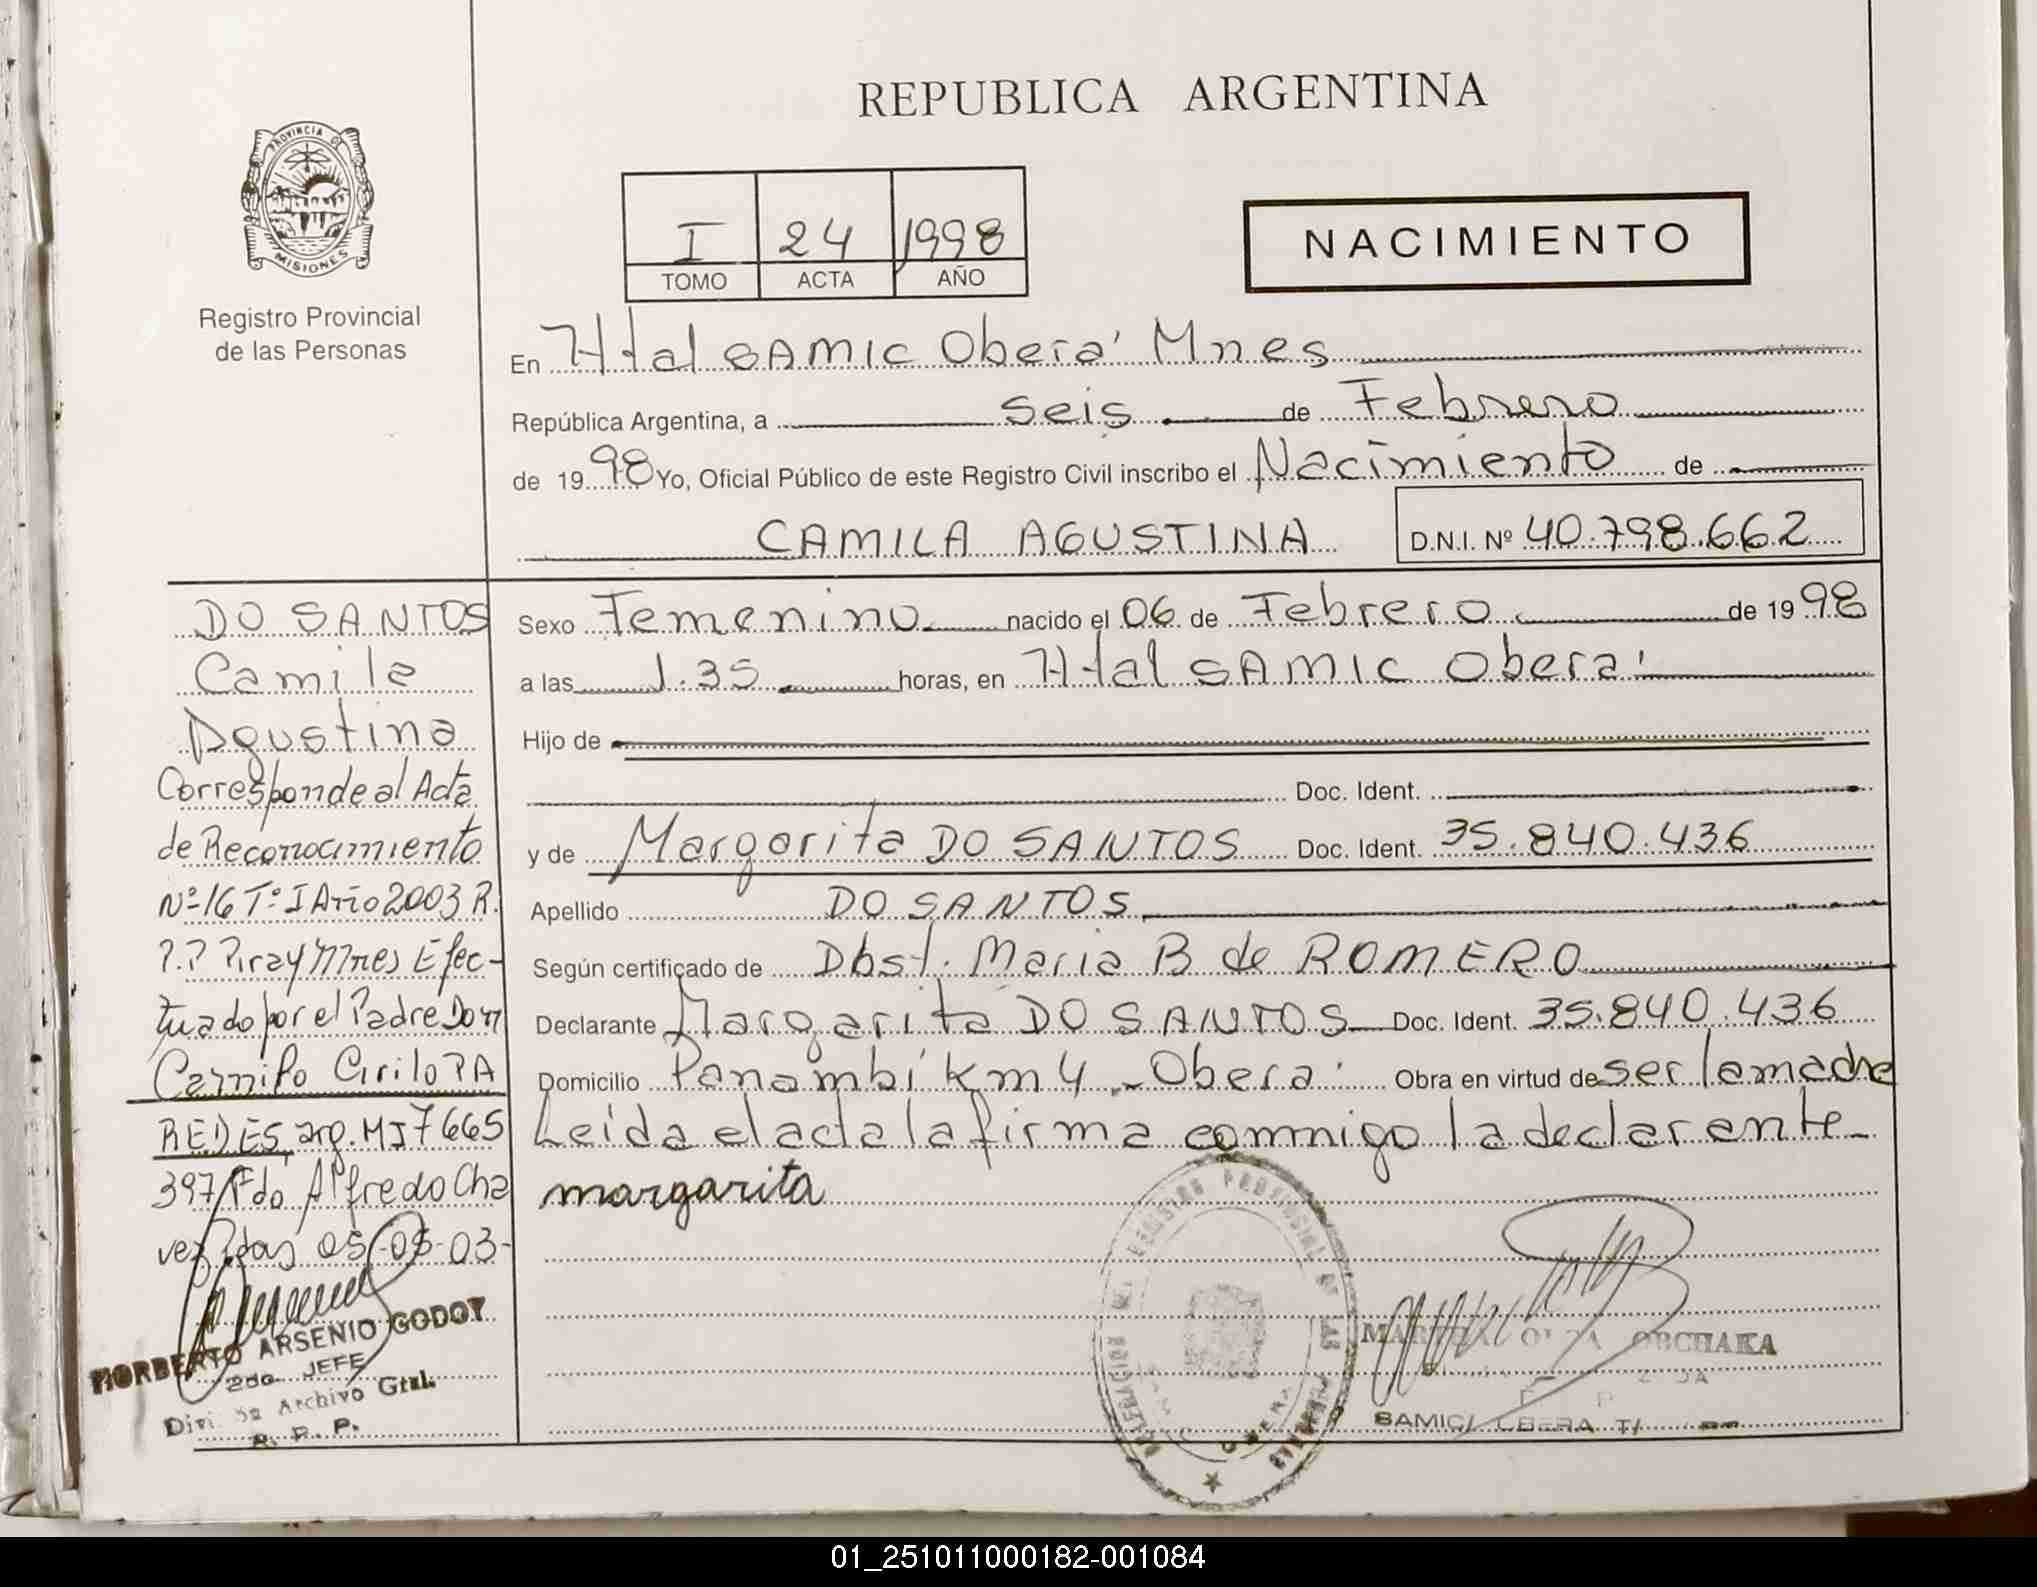 REPUBLICA ARGENTINA
PROVINCIA DE
MISIONES
Registro Provincial
de las Personas
I 24 1998
TOMO ACTA AÑO
NACIMIENTO
En Htal SAMIC Oberá Mnes
República Argentina, a seis de Febrero
de 1998 Yo, Oficial Público de este Registro Civil inscribo el Nacimiento de
CAMILA AGUSTINA D.N.I. Nº 40.798.662
DO SANTOS
Camila
Agustina
Corresponde al Acta
de Reconocimiento
Nº 16 Tº I Año 2003 R.
P.P Piray Mnes Efec-
tuado por el Padre Don
Cirilo
REDES, arg. MI 7665
397 Fdo. Alfredo Cha
vez 05-03-
NORBERTO ARSENIO GODOY
2do JEFE
Archivo Gral.
R. P. P.
Sexo Femenino nacido el 06 de Febrero de 1998
a las 1.35 horas, en Htal SAMIC Oberá
Hijo de
Doc. Ident.
y de Margarita DO SANTOS Doc. Ident. 35.840.436
Apellido DO SANTOS
Según certificado de Obst. Maria B de ROMERO
Declarante Margarita DO SANTOS Doc. Ident. 35.840.436
Domicilio Panambí Km 4 - Oberá Obra en virtud de ser la madre
Leida el acta la firma commigo la declarente
margarita
SAMIC OBERA
01_251011000182-001084